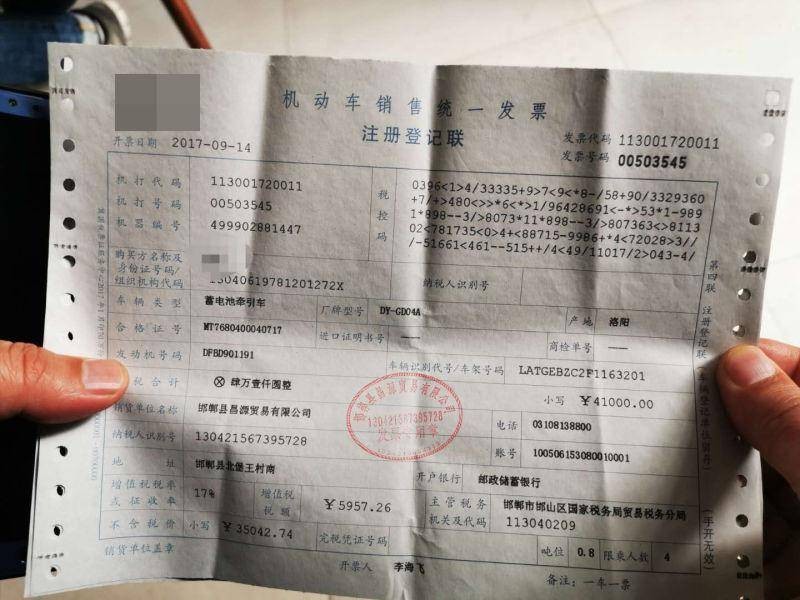 机动车销售统一发票
注册登记联
开票日期 2017-09-14
发票代码 113001720011
发票号码 00503545
机打代码 113001720011
机打号码 00503545
机器编号 499902881447
税控码
0396<1>4/33335+9>7<9<*8-/58+90/3329360
+7/+>480<>>*6<*>1/96428691<-*>53*1-989
1*898--3/>8073*11*898--3/>807363<>8113
02<781735<0>4+<88715-9986+*4<72028>3//
/-51661<461--515++/4<49/11017/2>043-4/
购买方名称及身份证号码/组织机构代码 13040619781201272X
纳税人识别号
车辆类型 蓄电池牵引车 厂牌型号 DY-GD04A 产地 洛阳
合格证号 MT7680400040717 进口证明书号 —— 商检单号 ——
发动机号码 DFBD901191 车辆识别代号/车架号码 LATGEBZC2F1163201
税合计 ⊗ 肆万壹仟圆整 小写 ¥41000.00
销货单位名称 邯郸县昌源贸易有限公司 电话 03108138800
纳税人识别号 130421567395728 账号 100506153080010001
地址 邯郸县北堡王村南 开户银行 邮政储蓄银行
增值税税率或征收率 17% 增值税税额 ¥5957.26 主管税务机关及代码 邯郸市邯山区国家税务局贸易税务分局
113040209
不含税价 小写 ¥35042.74 完税凭证号码 吨位 0.8 限乘人数 4
销货单位盖章 开票人 李海飞 备注：一车一票
第四联 注册登记联
(手开无效)
邯郸县昌源贸易有限公司
130421567395728
发票专用章